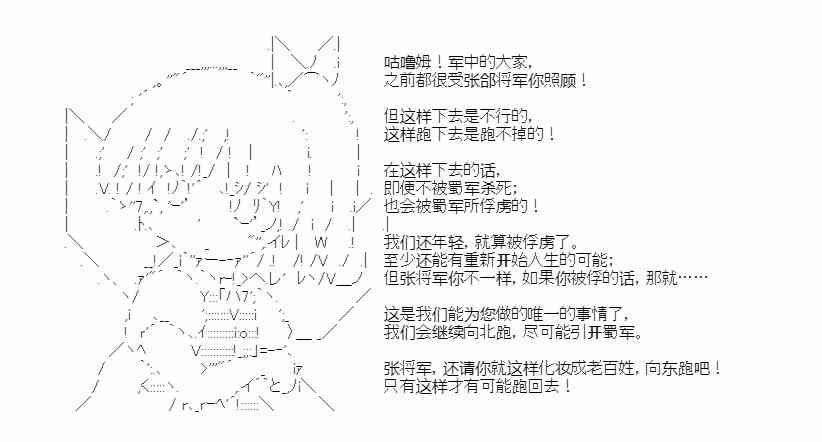 咕噜姆！军中的大家，
之前都很受张郃将军你照顾！
但这样下去是不行的，
这样跑下去是跑不掉的！
在这样下去的话，
即便不被蜀军杀死；
也会被蜀军所俘虏的！
我们还年轻，就算被俘虏了。
至少还能有重新开始人生的可能；
但张将军你不一样，如果你被俘的话，那就……
这是我们能为您做的唯一的事情了，
我们会继续向北跑，尽可能引开蜀军。
张将军，还请你就这样化妆成老百姓，向东跑吧！
只有这样才有可能跑回去！